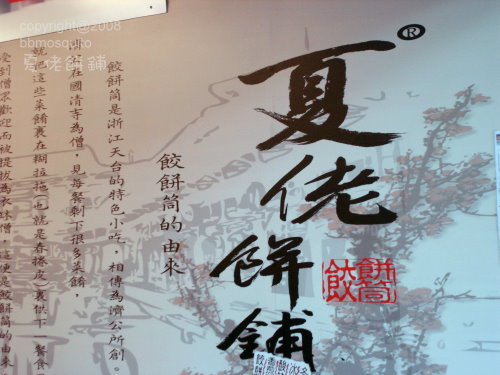 copyright@2008
bbmosquito
夏佬餅舖
夏佬餅舖
®
餃餅筒
餃餅筒的由來
餃餅筒是浙江天台的特色小吃，相傳為濟公所創。
在國清寺為僧，見每餐剩下很多菜餚，
就把這些菜餚裹在糊拉拖（也就是春捲皮）裏供下一餐食
受到僧眾歡迎而被提拔為衣缽僧，這便是餃餅筒的由來